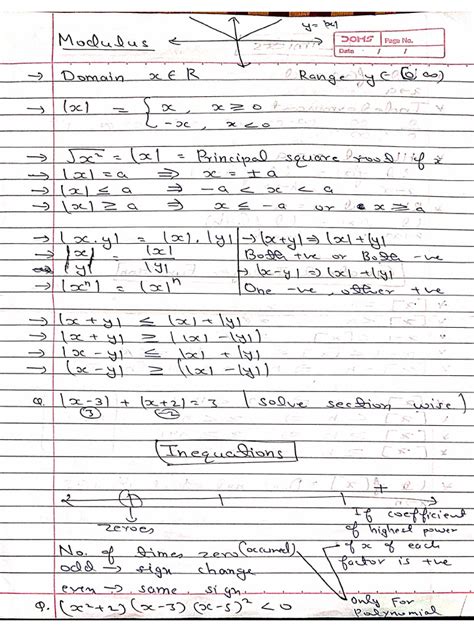 y = |x|
Modulus
DOMS Page No.
Date / /
→ Domain x ∈ R Range y ∈ [0, ∞)
→ |x| = { x, x ≥ 0
-x, x < 0
→ √x² = |x| = Principal square root if x
→ |x| = a ⇒ x = ± a
→ |x| ≤ a ⇒ -a < x < a
→ |x| ≥ a ⇒ x ≤ -a or x ≥ a
→ |x.y| = |x|.|y| → |x+y| ⇒ |x|+|y|
→ |x|/|y| = |x|/|y| Both +ve or Both -ve
→ |x-y| ⇒ |x|+|y|
→ |xⁿ| = |x|ⁿ One -ve, other +ve
→ |x + y| ≤ |x| + |y|
→ |x + y| ≥ ||x| - |y||
→ |x - y| ≤ |x| + |y|
→ |x - y| ≥ ||x| - |y||
Q. |x-3| + |x+2| = 3 (solve section wise)
3 -2
Inequations
+
zeroes
If coefficient
of highest power
of x of each
factor is +ve
No. of times zero (occured)
odd → sign change
even → same sign
only For
Polynomial
Q. (x²+2)(x-3)(x-5)² < 0